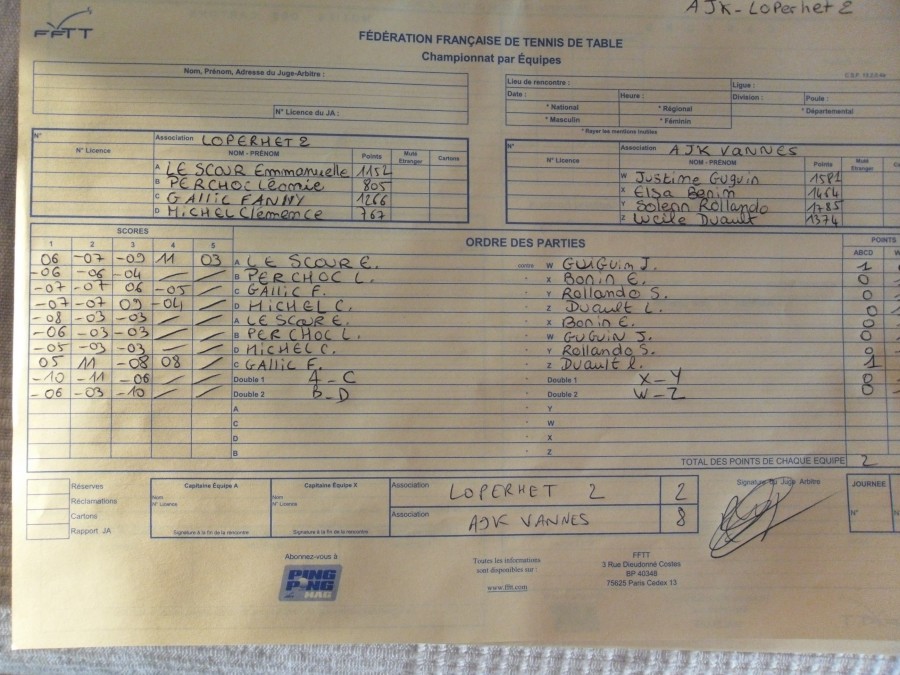 AJK-LOPerhet 2
FFTT
FÉDÉRATION FRANÇAISE DE TENNIS DE TABLE
Championnat par Équipes
Nom, Prénom, Adresse du Juge-Arbitre :
N° Licence du JA :
Lieu de rencontre : Ligue :
Date : Heure : Division : Poule :
* National * Régional * Départemental
* Masculin * Féminin
* Rayer les mentions inutiles
N° Association LOPERHET 2
N° Licence NOM - PRÉNOM Points Muté Etranger Cartons
A LE SCOUR Emmanuelle 1152
B PERCHOC Léonie 805
C GALLIC FANNY 1266
D MICHEL Clémence 767
N° Association AJK VANNES
N° Licence NOM - PRÉNOM Points Muté Etranger
W Justine Guguin 1581
X Elsa Bonin 1464
Y Solenn Rollando 1785
Z Lucile Duault 1374
SCORES ORDRE DES PARTIES POINTS
1 2 3 4 5 ABCD
06 -07 -09 11 03 A LE SCOUR E. contre W GUIGUIN J. 1
-06 -06 -04 B PERCHOC L. X BONIN E. 0
-07 -07 06 -05 C GALLIC F. Y Rollando S. 0
-07 -07 09 -04 D MICHEL C. Z Duault L. 0
-08 -03 -03 A LE SCOUR E. X Bonin E. 0
-06 -03 -03 B PERCHOC L. W GUGUIN J. 0
-05 -03 -03 D MICHEL C. Y Rollando S. 0
05 11 -08 08 C GALLIC F. Z Duault l. 1
-10 -11 -06 Double 1 A-C Double 1 X-Y 0
-06 -03 -10 Double 2 B-D Double 2 W-Z 0
A Y
C W
D X
B Z
TOTAL DES POINTS DE CHAQUE EQUIPE 2
Réserves
Réclamations
Cartons
Rapport. JA
Capitaine Équipe A
Nom
N° Licence
Signature à la fin de la rencontre
Capitaine Équipe X
Nom
N° Licence
Signature à la fin de la rencontre
Association LOPERHET 2 2
Association AJK VANNES 8
Signature du Juge Arbitre
JOURNEE
N°
Abonnez-vous à
PING PONG MAG
Toutes les informations
sont disponibles sur :
www.fftt.com
FFTT
3 Rue Dieudonné Costes
BP 40348
75625 Paris Cedex 13